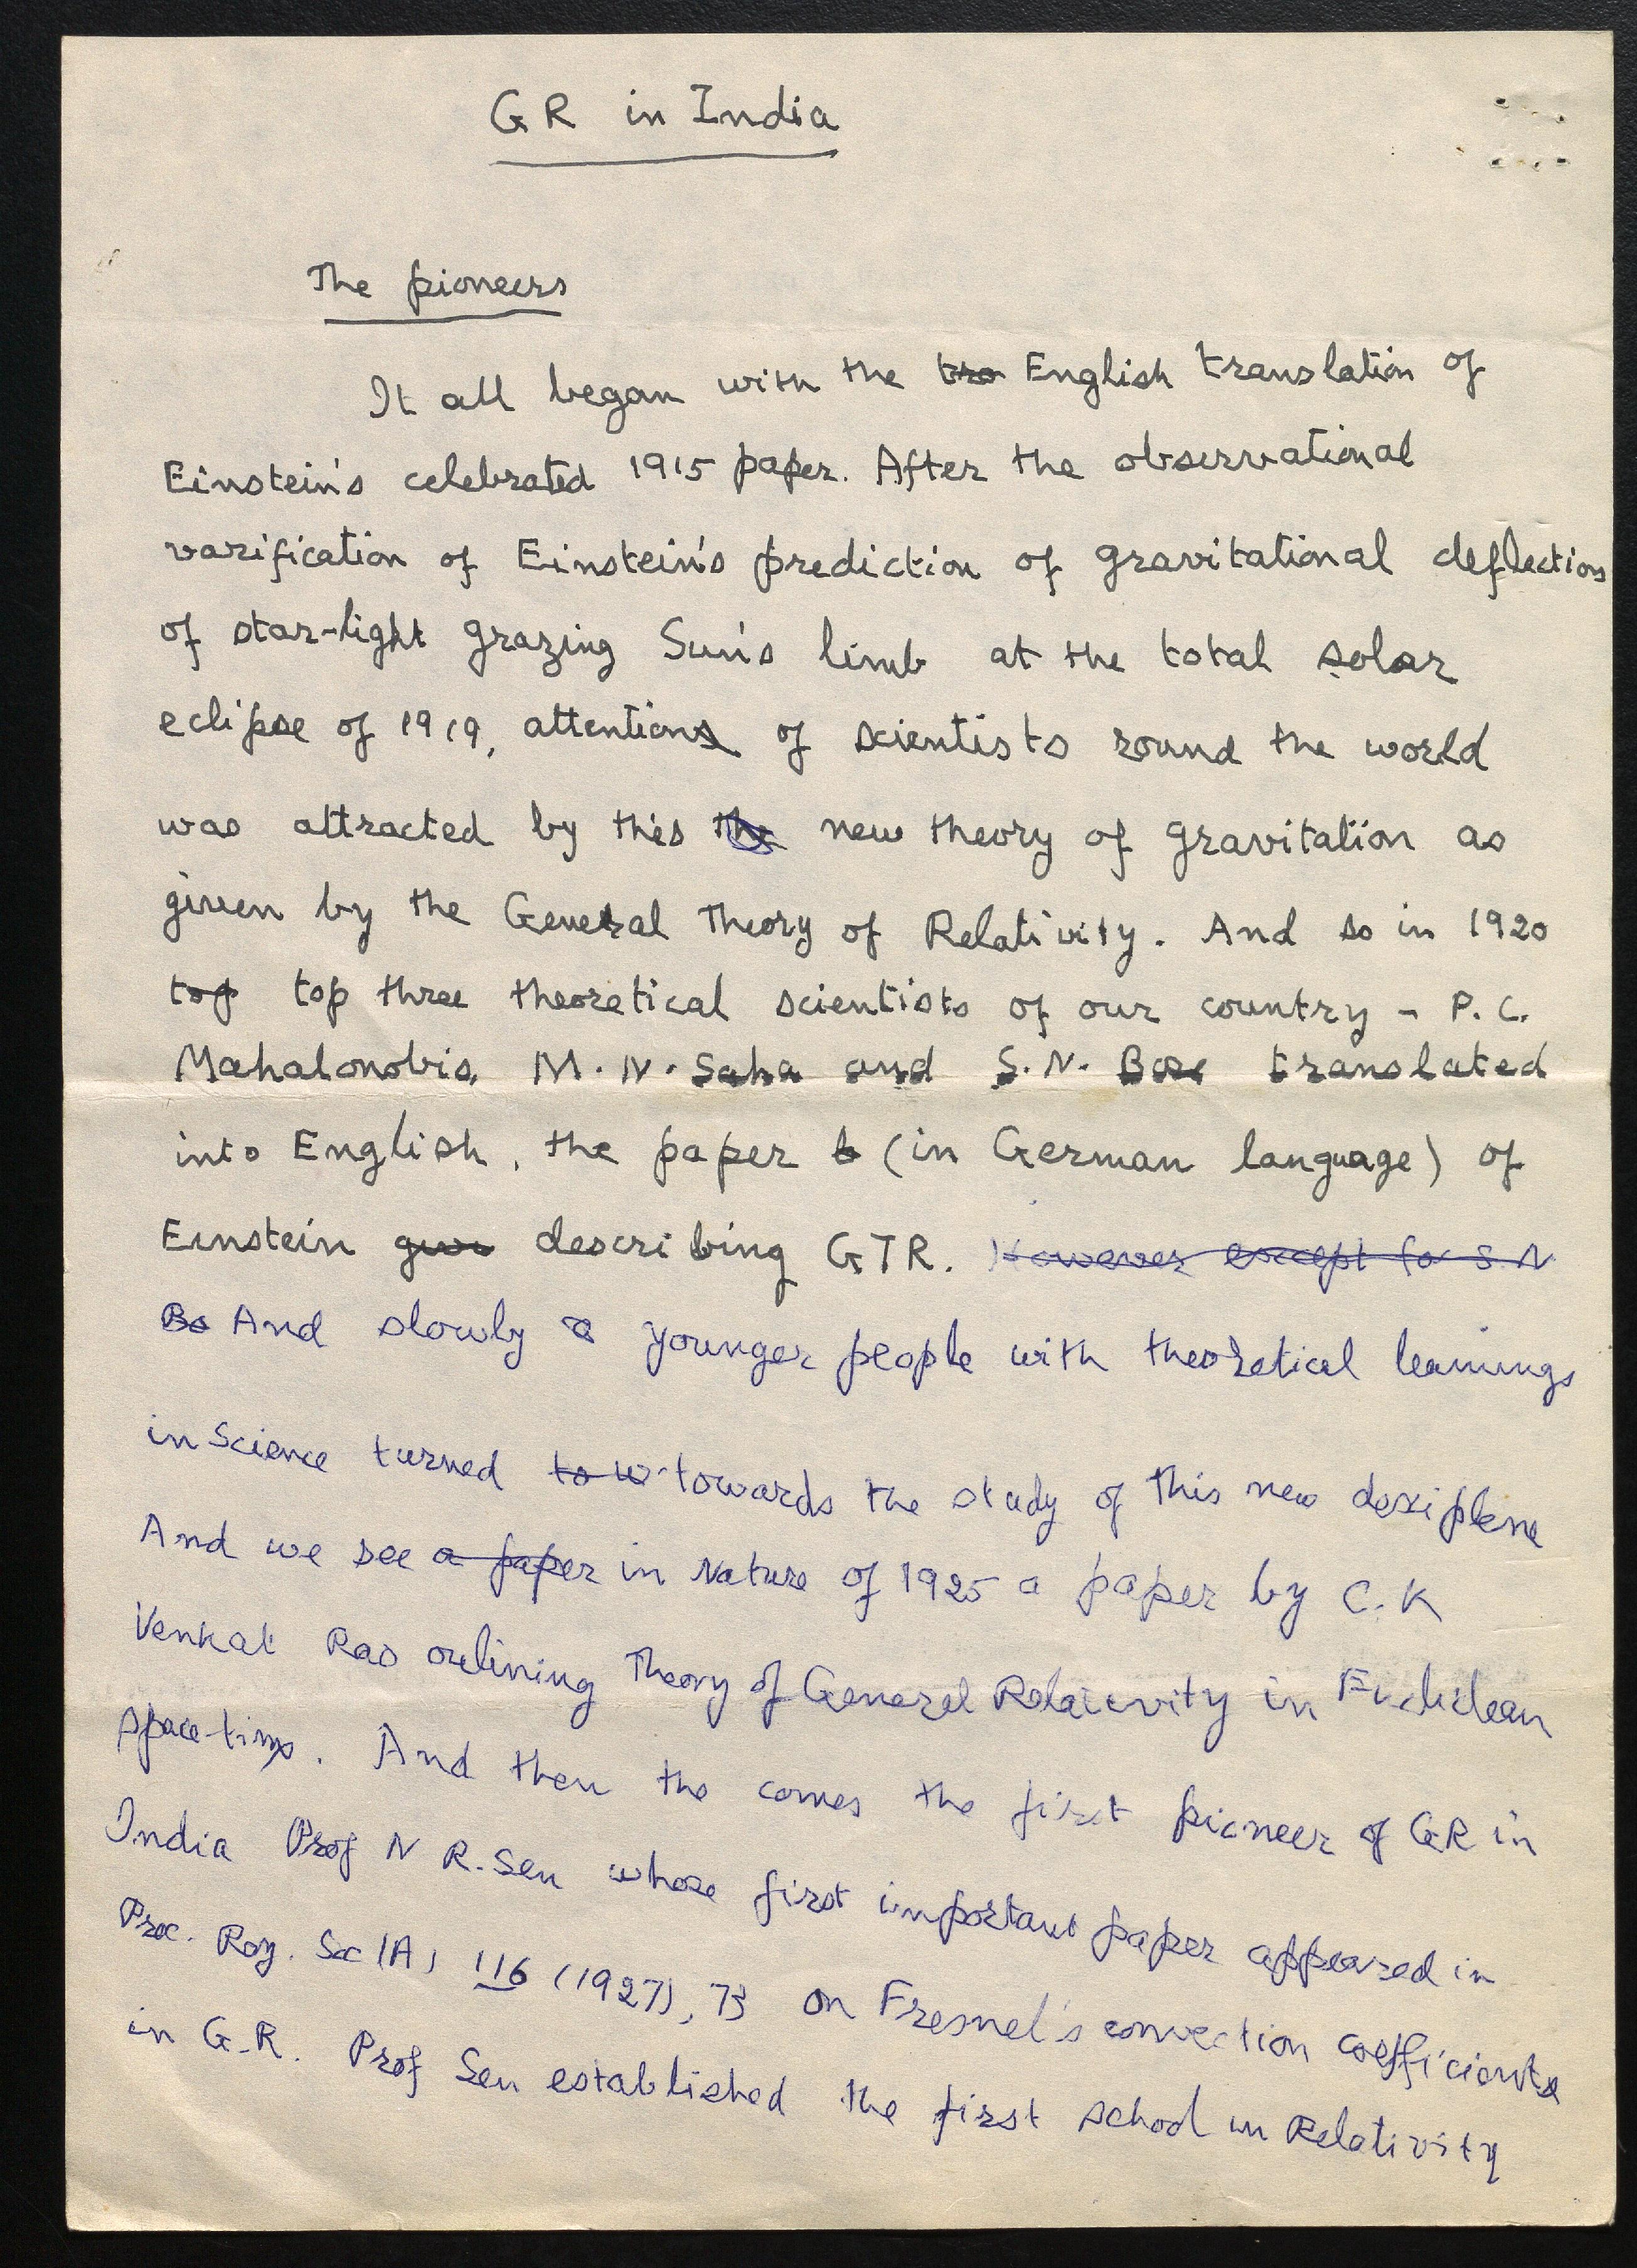 GR in India
The pioneers
It all began with the tra English translation of
Einstein's celebrated 1915 paper. After the observational
varification of Einstein's prediction of gravitational deflection
of star-light grazing Sun's limb at the total solar
eclipse of 1919, attention of scientists round the world
was attracted by this the new theory of gravitation as
given by the General Theory of Relativity. And so in 1920
top top three theoretical scientists of our country - P.C.
Mahalonobis, M.N. Saha and S.N. Bose translated
into English, the paper b (in German language) of
Einstein give describing GTR. However except for S.N
Bo And slowly a younger people with theoretical leanings
in science turned to w towards the study of this new desiplene
And we see a paper in Nature of 1925 a paper by C.K
Venkat Rao outlining Theory of General Relativity in Euclidean
space-time. And then the comes the first pioneer of GR in
India Prof N R. Sen whose first important paper appeared in
Proc. Roy. Soc (A) 116 (1927), 73 on Fresnel's convection coefficients
in G.R. Prof Sen established the first school in Relativity